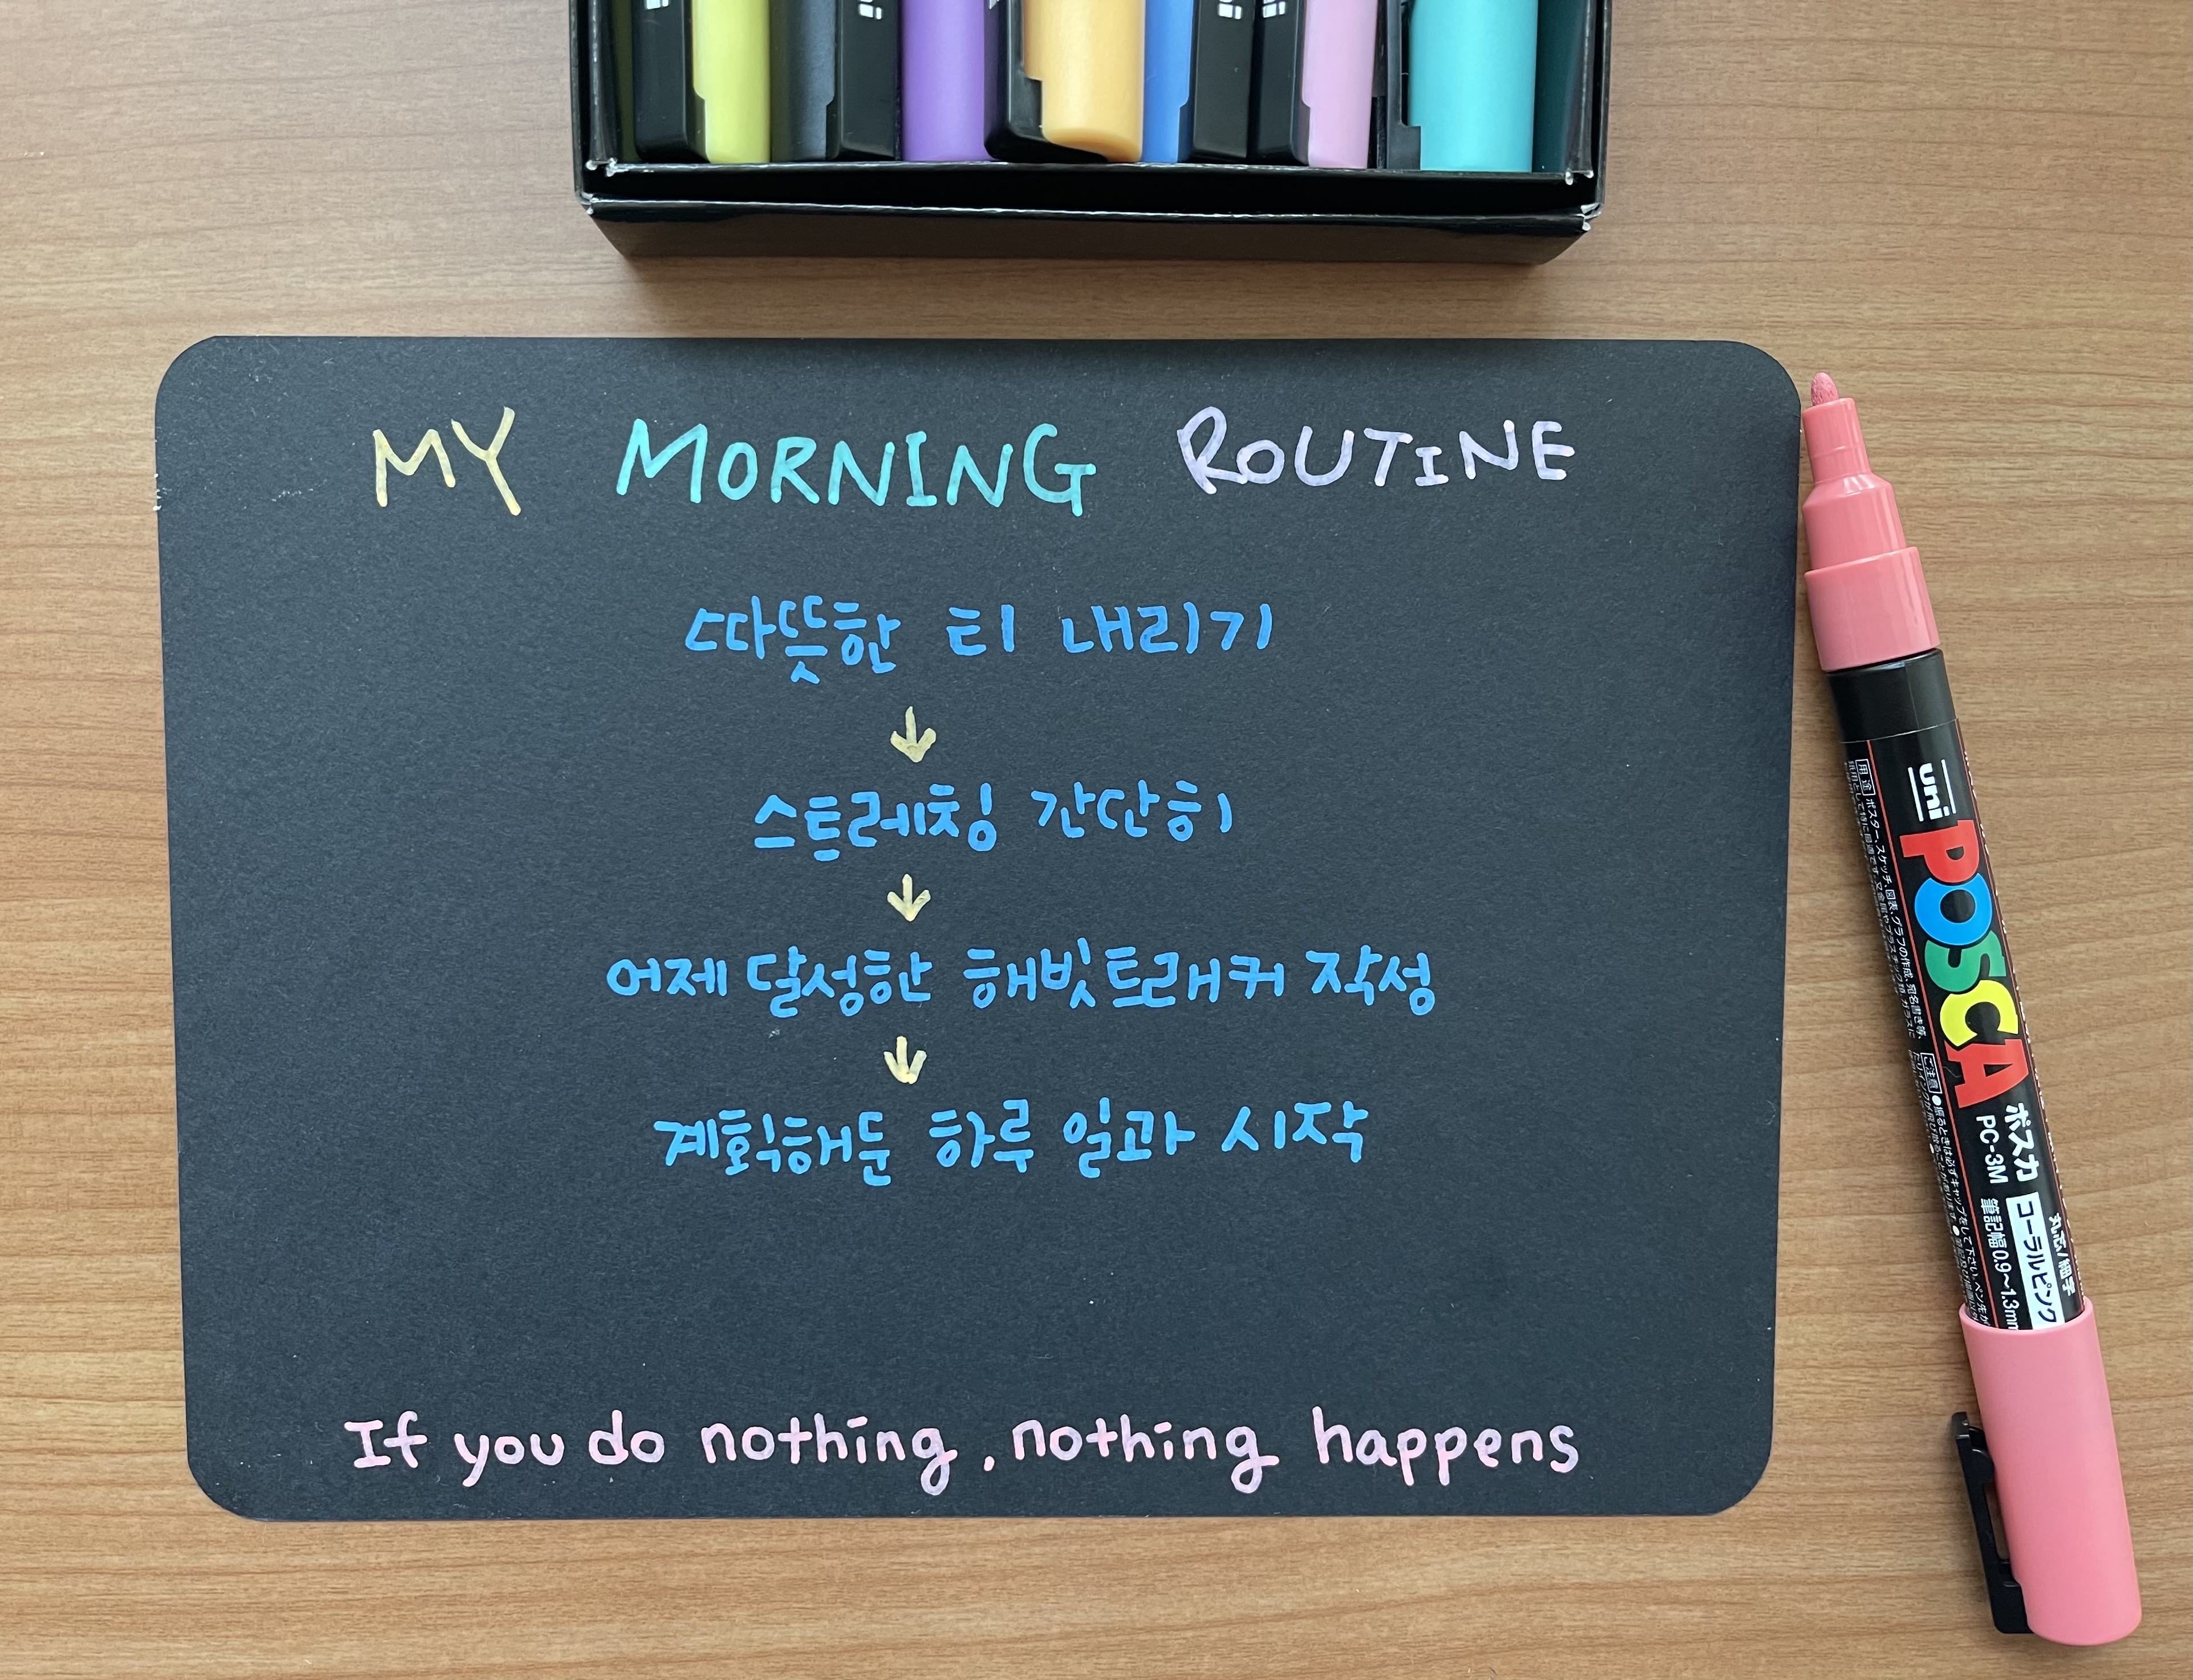 MY MORNING ROUTINE
따뜻한 티 내리기
↓
스트레칭 간단히
↓
어제 달성한 해빗트래커 작성
↓
계획해둔 하루 일과 시작
If you do nothing, nothing happens
uni
POSCA
ポスカ
PC-3M
丸芯/細字
コーラルピンク
筆記幅0.9~1.3mm
用途
ご注意